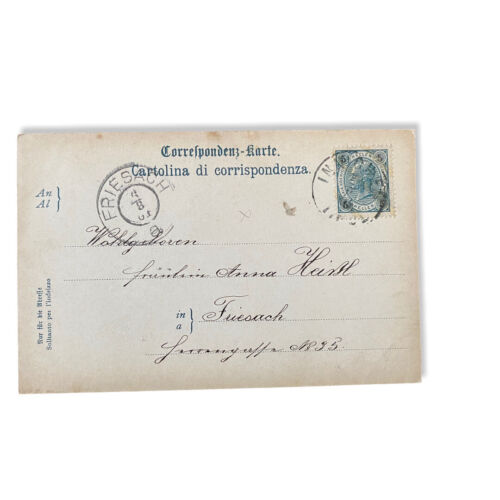 Correspondenz-Karte.
Cartolina di corrispondenza.
An
Al
FRIESACH
Wohlgeboren
Fräulein Anna Heistl
in
a
Friesach
Herrengasse N 35.
Nur für die Adresse
Soltanto per l'indirizzo